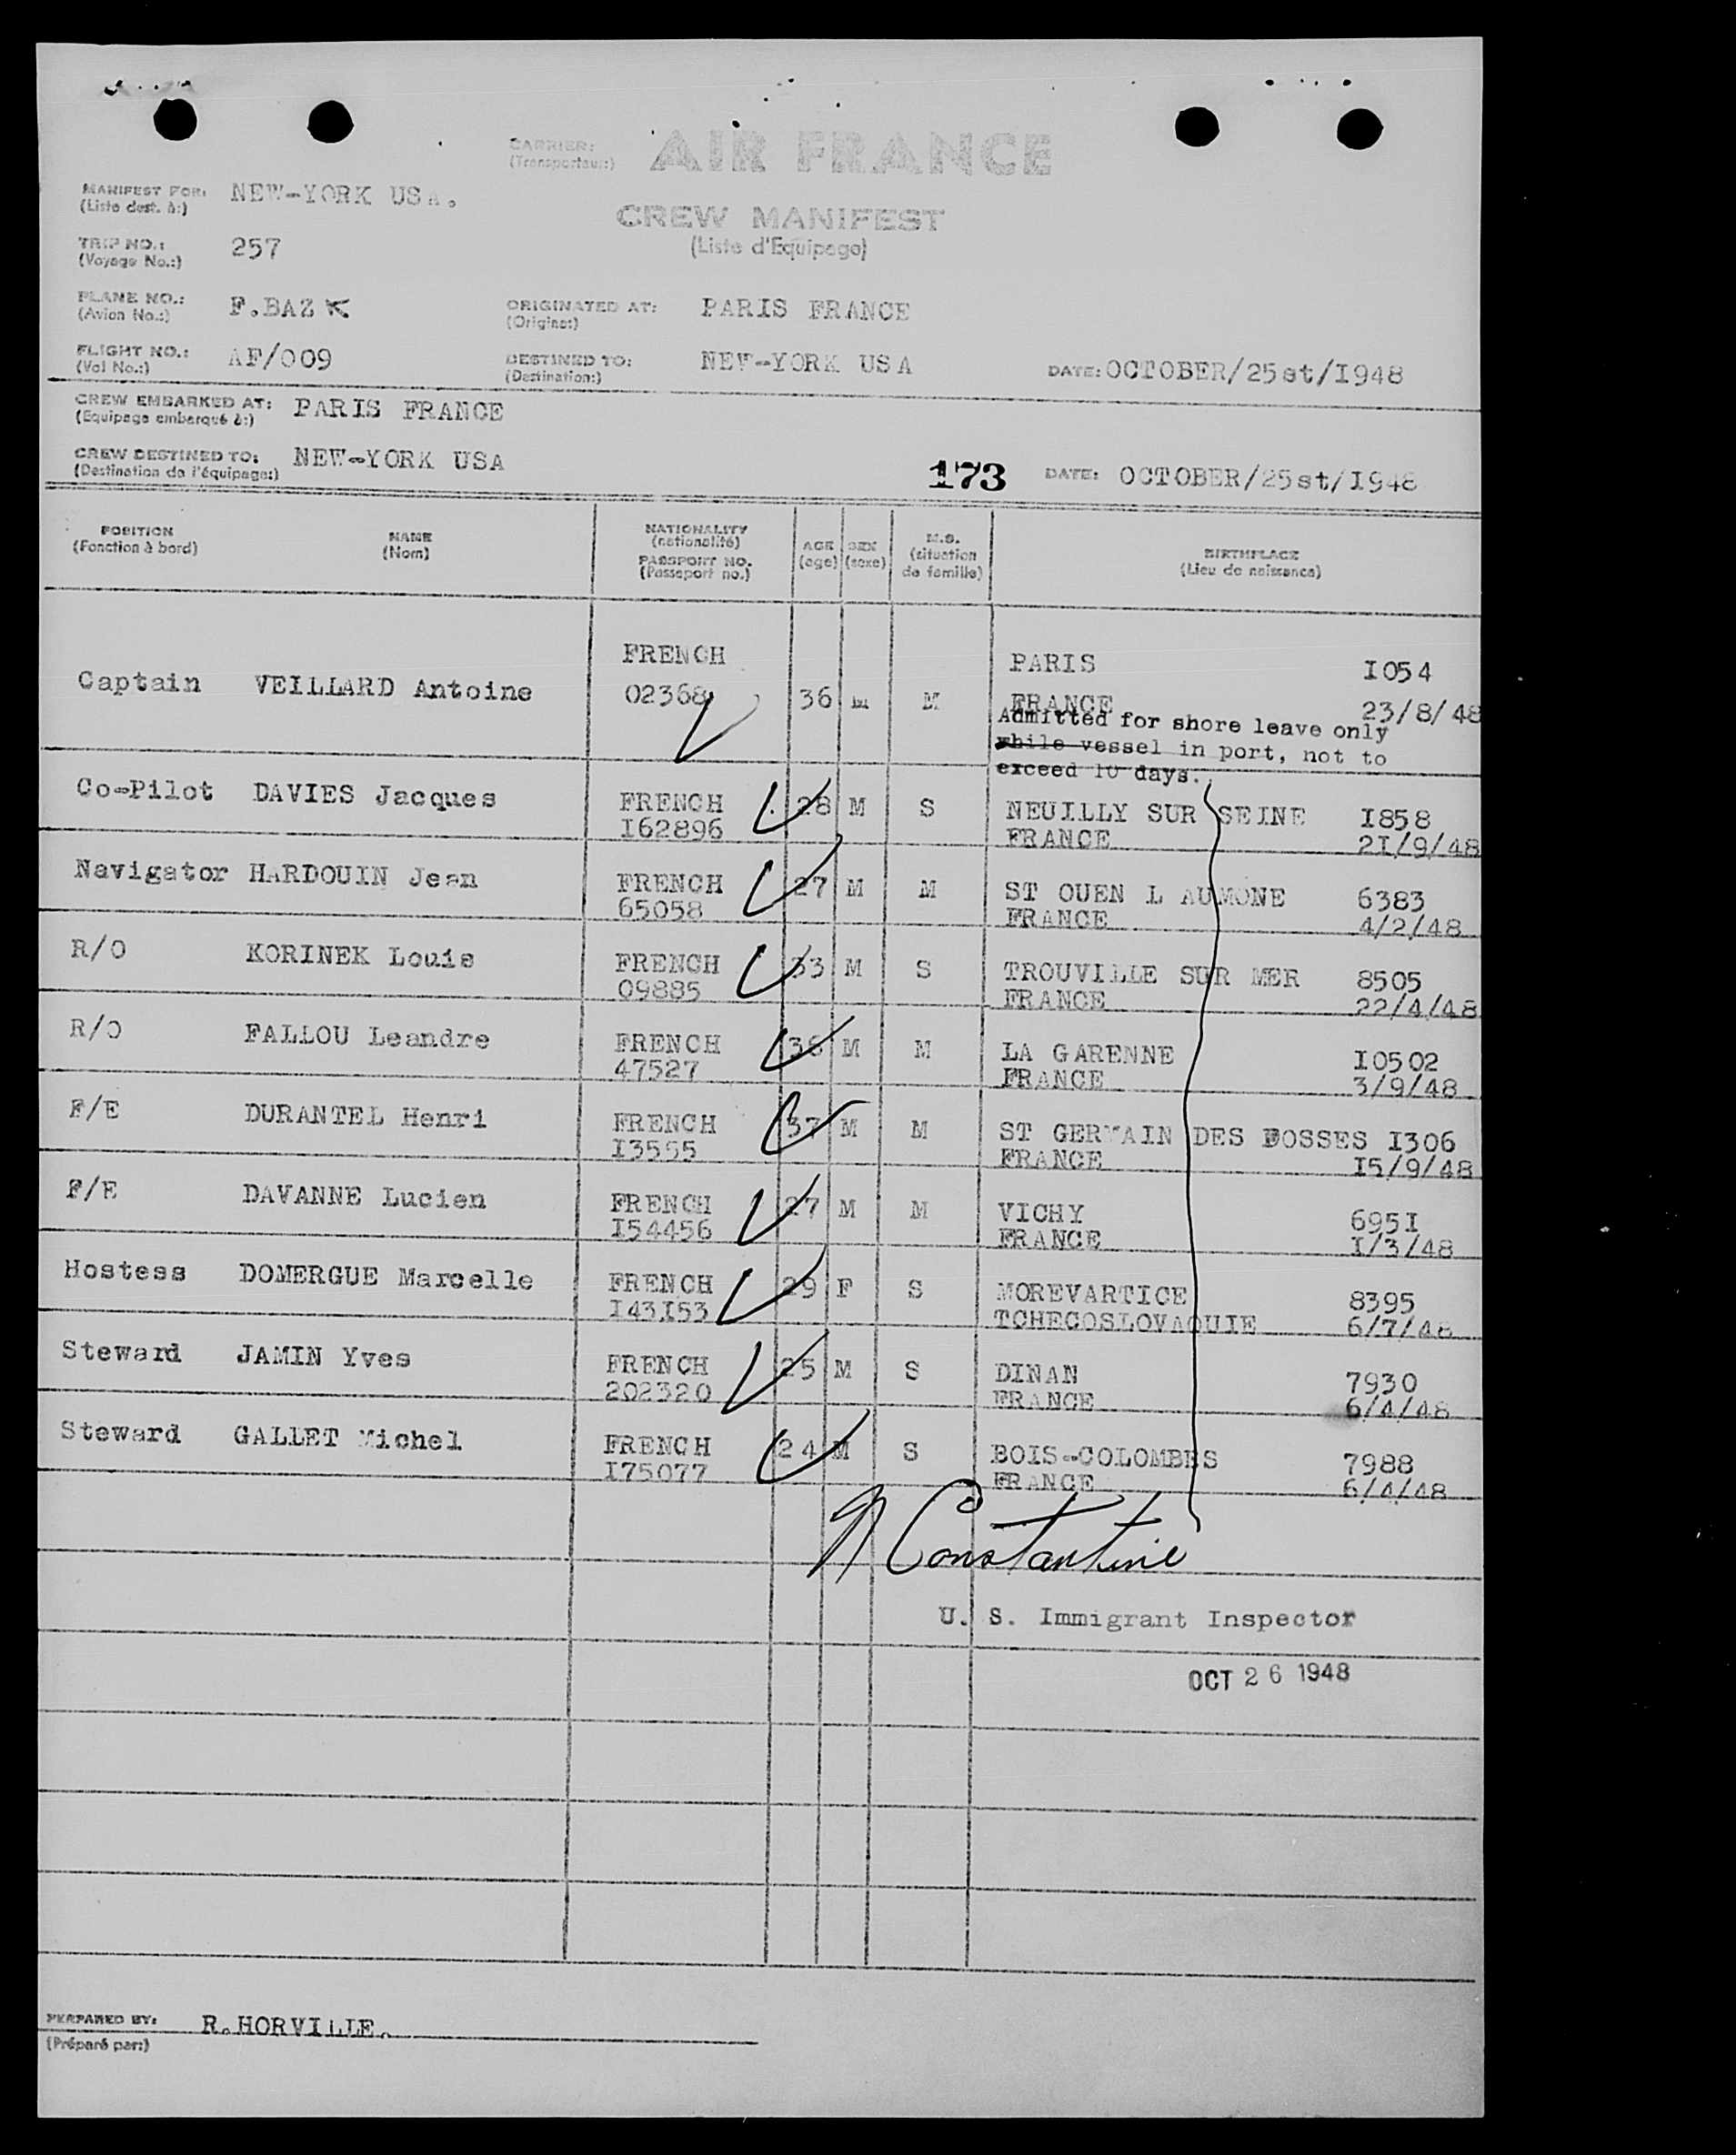 CARRIER: AIR FRANCE
(Transporteur:)
MANIFEST FOR: NEW-YORK USA.
(Liste dest. à:)
CREW MANIFEST
(Liste d'Equipage)
TRIP NO.: 257
(Voyage No.:)
PLANE NO.: F.BAZ K
(Avion No.:)
ORIGINATED AT: PARIS FRANCE
(Origine:)
FLIGHT NO.: AF/009
(Vol No.:)
DESTINED TO: NEW-YORK USA
(Destination:)
DATE: OCTOBER/25st/I948
CREW EMBARKED AT: PARIS FRANCE
(Equipage embarqué à:)
CREW DESTINED TO: NEW-YORK USA
(Destination de l'équipage:)
173
DATE: OCTOBER/25st/I948
POSITION
(Fonction à bord)
NAME
(Nom)
NATIONALITY
(nationalité)
PASSPORT NO.
(Passeport no.)
AGE
(age)
SEX
(sexe)
M.S.
(situation
de famille)
BIRTHPLACE
(Lieu de naissance)
Captain VEILLARD Antoine FRENCH 36 M M PARIS I054
02368 FRANCE 23/8/48
Admitted for shore leave only
while vessel in port, not to
exceed 10 days.
Co-Pilot DAVIES Jacques FRENCH 28 M S NEUILLY SUR SEINE I858
I62896 FRANCE 2I/9/48
Navigator HARDOUIN Jean FRENCH 27 M M ST OUEN L AUMONE 6383
65058 FRANCE 4/2/48
R/O KORINEK Louis FRENCH 33 M S TROUVILLE SUR MER 8505
09885 FRANCE 22/4/48
R/O FALLOU Leandre FRENCH 38 M M LA GARENNE I0502
47527 FRANCE 3/9/48
F/E DURANTEL Henri FRENCH 37 M M ST GERMAIN DES FOSSES I306
I3555 FRANCE I5/9/48
F/E DAVANNE Lucien FRENCH 27 M M VICHY 695I
I54456 FRANCE I/3/48
Hostess DOMERGUE Marcelle FRENCH 29 F S MOREVARTICE 8395
I43I53 TCHECOSLOVAQUIE 6/7/48
Steward JAMIN Yves FRENCH 25 M S DINAN 7930
202320 FRANCE 6/4/48
Steward GALLET Michel FRENCH 24 M S BOIS-COLOMBES 7988
I75077 FRANCE 6/4/48
N Constantine
U. S. Immigrant Inspector
OCT 26 1948
PERPARED BY: R.HORVILLE.
(Préparé par:)